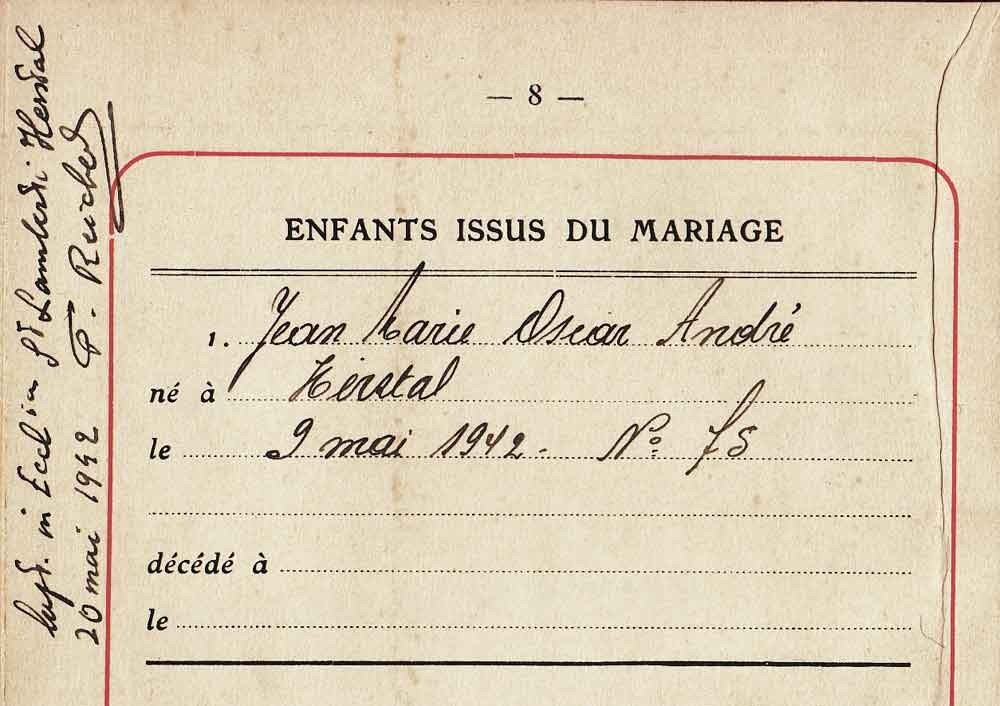 — 8 —
ENFANTS ISSUS DU MARIAGE
1. Jean Marie Oscar André
né à Herstal
le 9 mai 1942. No: 75
décédé à
le
bapt. in Eccl in St Lamberti Herstal
20 mai 1942